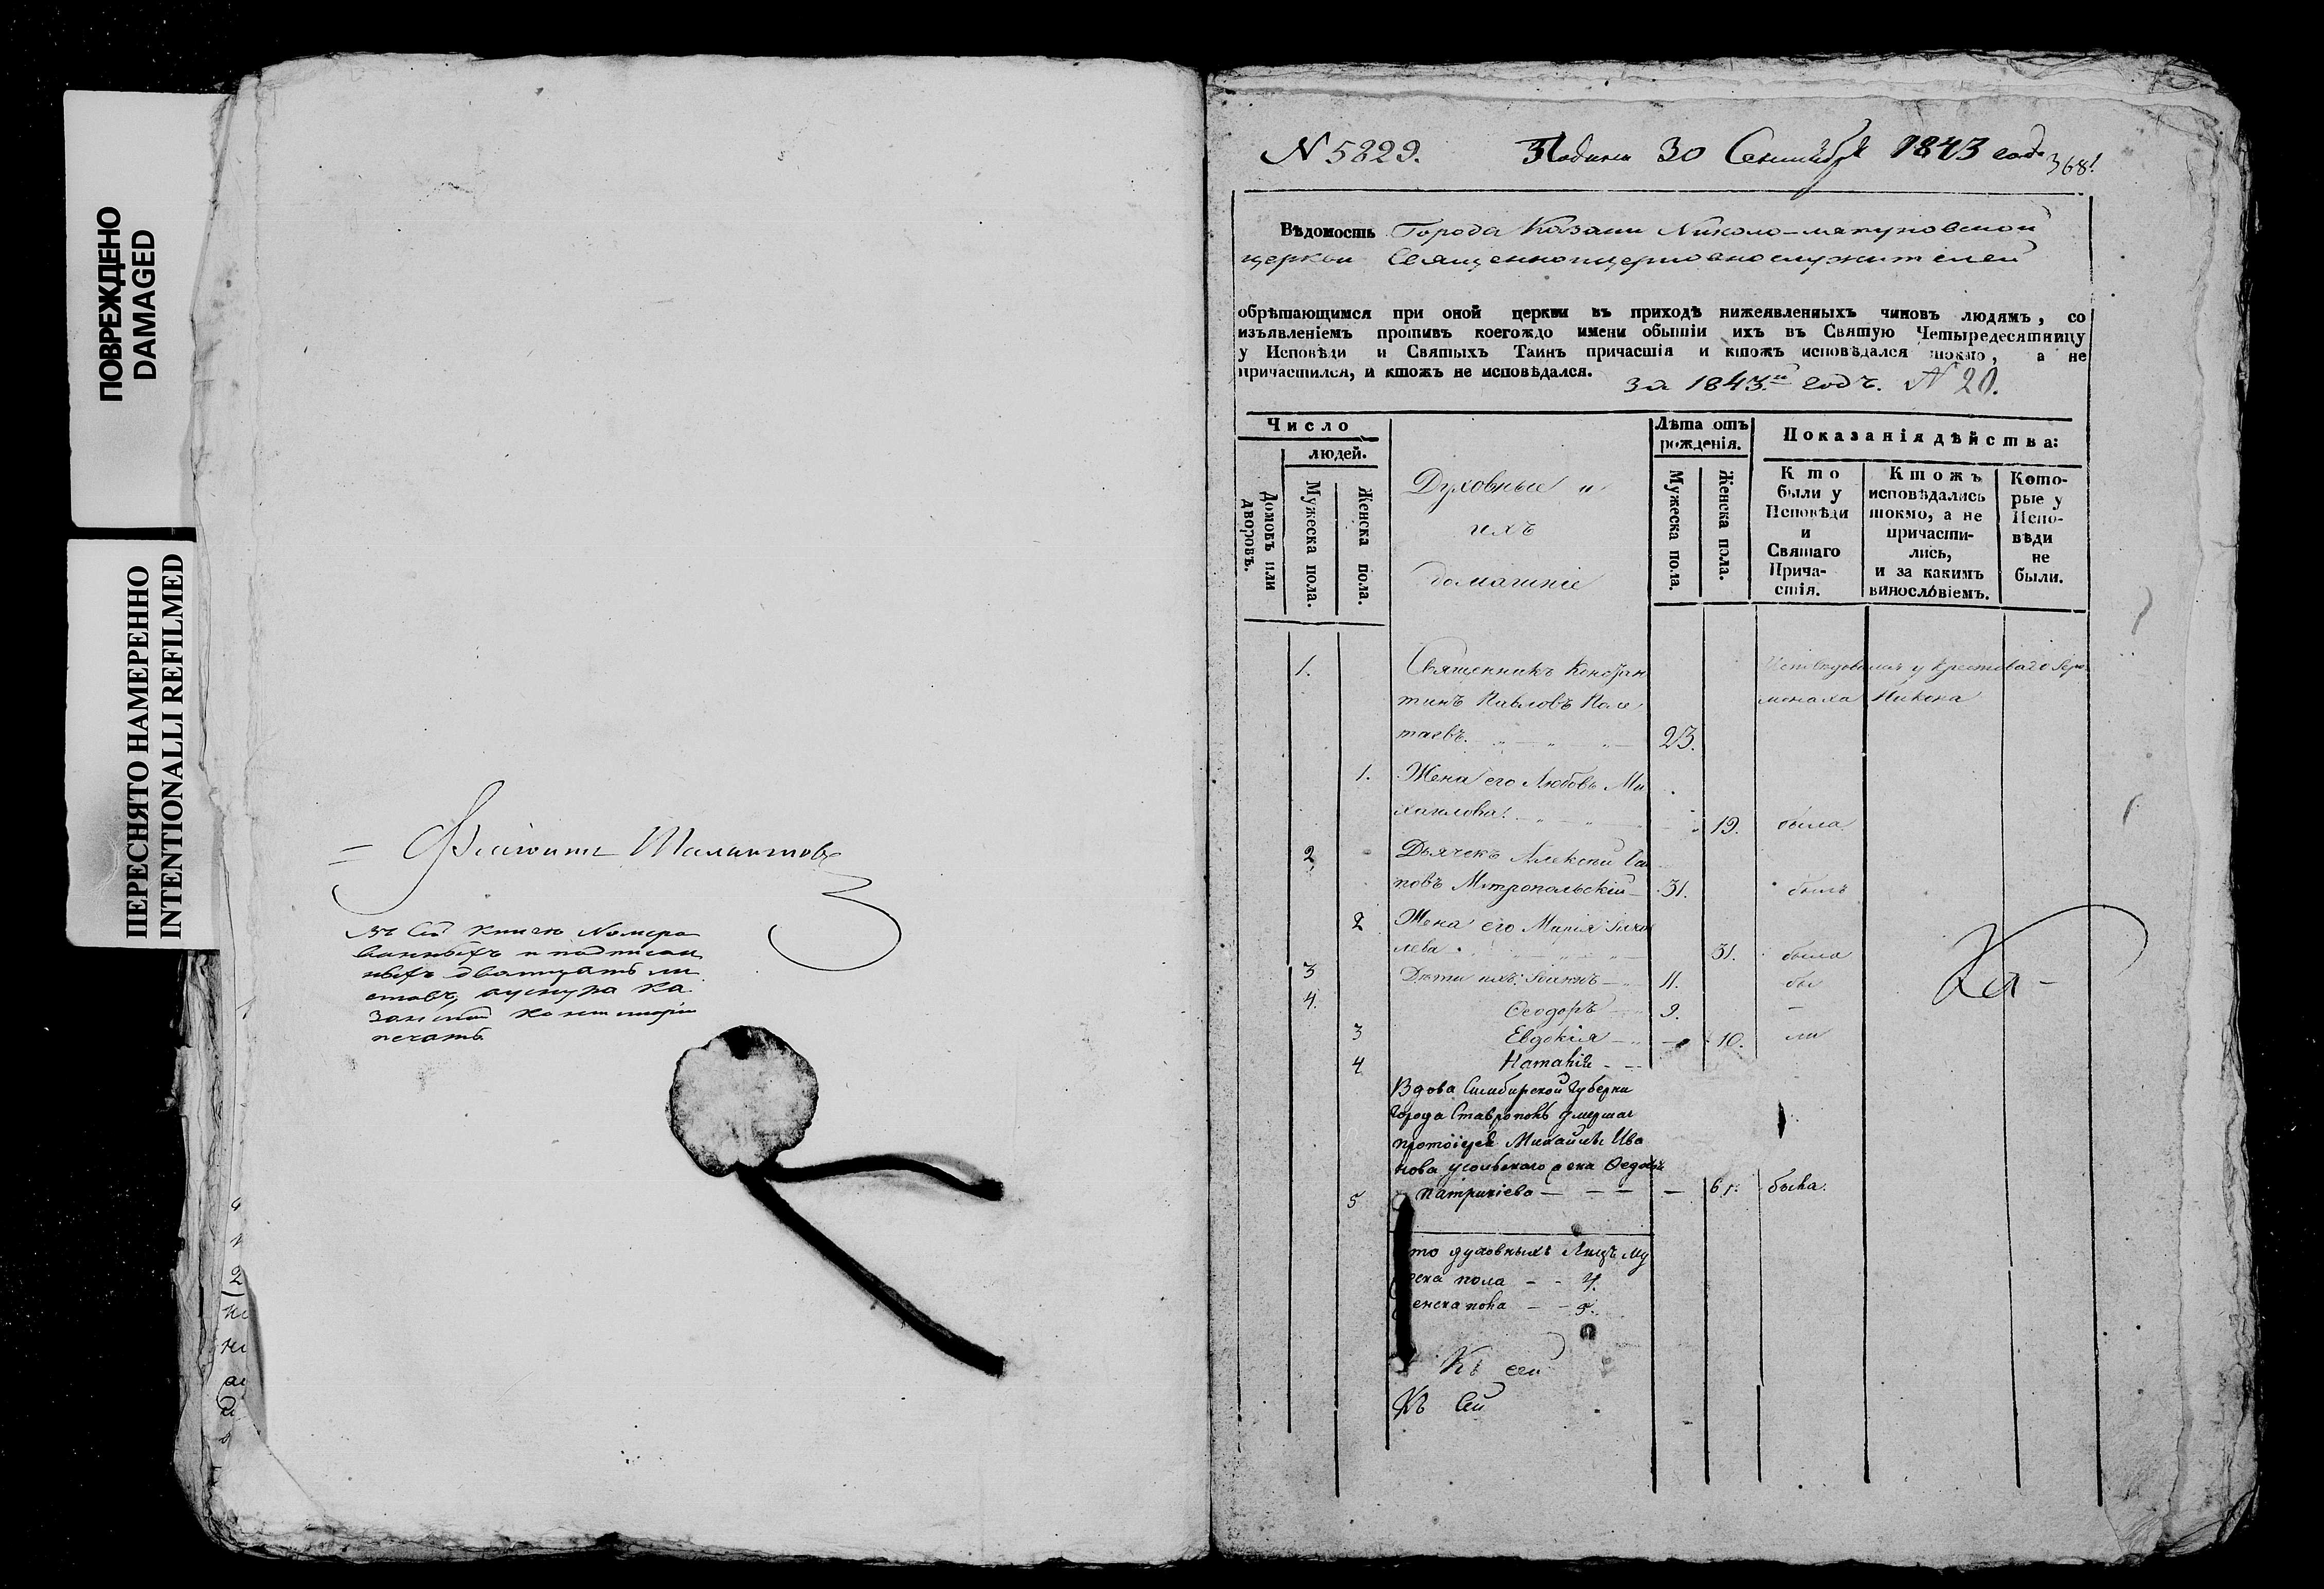 ПОВРЕЖДЕНО
DAMAGED
ПЕРЕСНЯТО НАМЕРЕННО
INTENTIONALLI REFILMED
Въ сей книгѣ Номеро
ванныхъ и подписан
ныхъ двадцать ли
стовъ, Ка
занской Консисторіи
печать
N 5829. 30 Сентября 1843 года
368
Вѣдомость Города Казани Николо-
церкви Священноцерковнослужителей
обрѣтающимся при оной церкви въ приходѣ нижеявленныхъ чиновъ людямъ, со
изъявленіемъ противъ коегождо имени бытіи ихъ въ Святую Четыредесятницу
у Исповѣди и Святыхъ Таинъ причастія и ктожъ исповѣдался токмо, а не
причастился, и ктожъ не исповѣдался.
за 1843й годъ. N 20.
Число
людей.
Домовъ или дворовъ.
Мужеска пола.
Женска пола.
Духовные и
ихъ
домашніе
Лѣта отъ
рожденія.
Мужеска пола.
Женска пола.
Показанія дѣйства:
Кто
были у
Исповѣди
и
Святаго
Прича-
стія.
Ктожъ
исповѣдались
токмо, а не
причасти-
лись,
и за какимъ
винословіемъ.
Кото-
рые у
Испо-
вѣди
не
были.
1. Священникъ Констан Исповѣдовался у Крестоваго Іеро
тинъ Павловъ Поле монаха Никона
таевъ. 23.
1. Жена его Любовь Ми
хаилова. 19. была
2 Дьячекъ Алексѣй
повъ Митропольскій 31. былъ
2 Жена его Марія
лева 31. была
3 Дѣти ихъ: Іоаннъ 11. бы
4. Ѳеодоръ 9. —
3 Евдокія — 10. ли
4 Наталія
Вдова Симбирской Губерни
города Ставрополь умершаг
протоіерея Михаила Ива
нова жена Ѳедос
5 Патрикіева — — — — 61. была.
духовныхъ Лицъ му
ска пола - - 4.
енска пола - - 5.
Къ сей
Къ сей